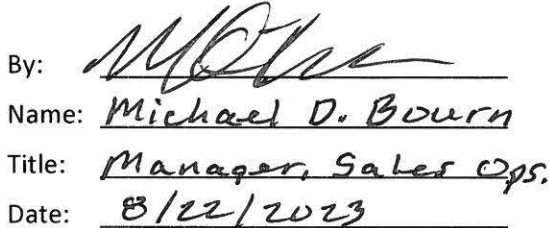 By:
Name: Michael D. Bourn
Title: Manager, Sales Ops.
Date: 8/22/2023